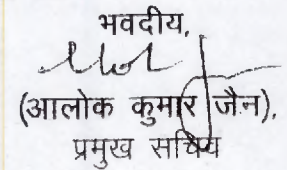 भवदीय,
(आलोक कुमार जैन),
प्रमुख सचिव